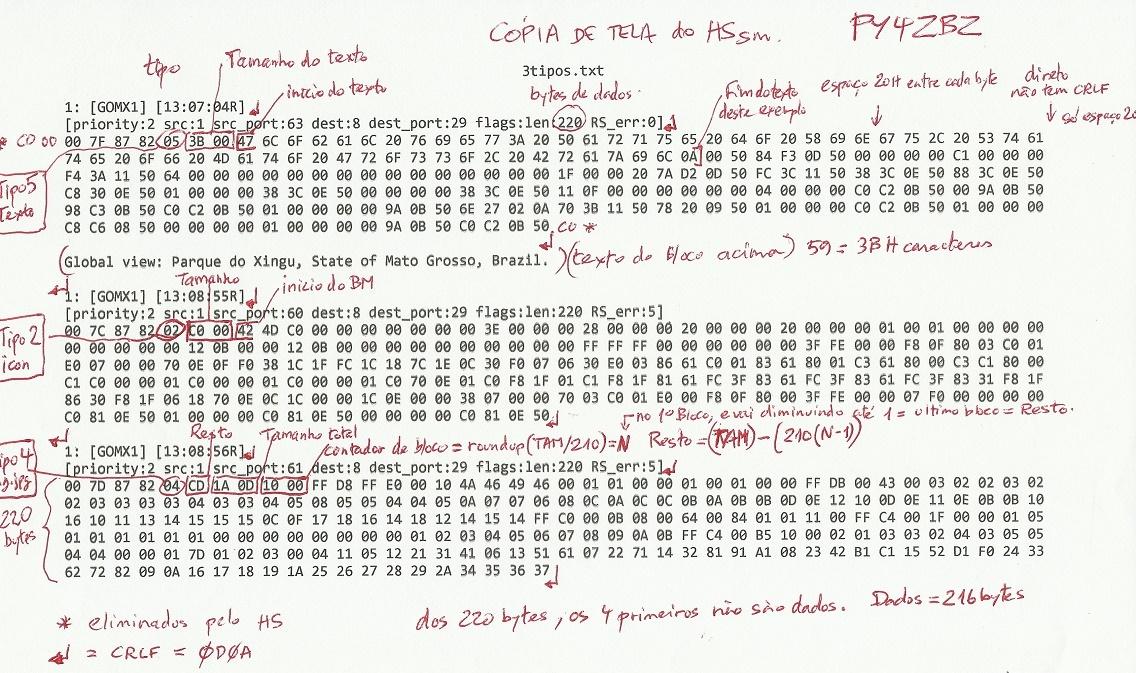 CÓPIA DE TELA do HSsm. PY4ZBZ
tipo
Tamanho do texto
início do texto
3tipos.txt
bytes de dados.
Fim do texto
deste exemplo
espaço 20H entre cada byte
direto
não tem CRLF
só espaço 20
1: [GOMX1] [13:07:04R]
[priority:2 src:1 src_port:63 dest:8 dest_port:29 flags:len:220 RS_err:0]
* CD 00 00 7F 87 82 05 3B 00 47 6C 6F 62 61 6C 20 76 69 65 77 3A 20 50 61 72 71 75 65 20 64 6F 20 58 69 6E 67 75 2C 20 53 74 61
74 65 20 6F 66 20 4D 61 74 6F 20 47 72 6F 73 73 6F 2C 20 42 72 61 7A 69 6C 0A 00 50 84 F3 0D 50 00 00 00 00 C1 00 00 00
F4 3A 11 50 64 00 00 00 00 00 00 00 00 00 00 00 00 00 00 00 1F 00 00 20 7A D2 0D 50 FC 3C 11 50 38 3C 0E 50 88 3C 0E 50
C8 30 0E 50 01 00 00 00 38 3C 0E 50 00 00 00 00 38 3C 0E 50 11 0F 00 00 00 00 00 00 04 00 00 00 C0 C2 0B 50 00 9A 0B 50
98 C3 0B 50 C0 C2 0B 50 01 00 00 00 00 9A 0B 50 6E 27 02 0A 70 3B 11 50 78 20 09 50 01 00 00 00 C0 C2 0B 50 01 00 00 00
C8 C6 08 50 00 00 00 00 01 00 00 00 00 9A 0B 50 C0 C2 0B 50 CO *
Tipo 5
Texto
(Global view: Parque do Xingu, State of Mato Grosso, Brazil. ) (texto do bloco acima) 59 = 3BH caracteres
Tamanho
início do BM
1: [GOMX1] [13:08:55R]
[priority:2 src:1 src_port:60 dest:8 dest_port:29 flags:len:220 RS_err:5]
00 7C 87 82 02 C0 00 42 4D C0 00 00 00 00 00 00 00 3E 00 00 00 28 00 00 00 20 00 00 00 20 00 00 00 01 00 01 00 00 00 00
00 00 00 00 00 12 0B 00 00 12 0B 00 00 00 00 00 00 00 00 00 00 FF FF FF 00 00 00 00 00 3F FE 00 00 F8 0F 80 03 C0 01
E0 07 00 00 70 0E 0F F0 38 1C 1F FC 1C 18 7C 1E 0C 30 F0 07 06 30 E0 03 86 61 C0 01 83 61 80 01 C3 61 80 00 C3 C1 80 00
C1 C0 00 00 01 C0 00 00 01 C0 00 00 01 C0 70 0E 01 C0 F8 1F 01 C1 F8 1F 81 61 FC 3F 83 61 FC 3F 83 61 FC 3F 83 31 F8 1F
86 30 F8 1F 06 18 70 0E 0C 1C 00 00 1C 0E 00 00 38 07 00 00 70 03 C0 01 E0 00 F8 0F 80 00 3F FE 00 00 07 F0 00 00 00 00
C0 81 0E 50 01 00 00 00 C0 81 0E 50 00 00 00 00 C0 81 0E 50
Tipo 2
icon
no 1º Bloco, e vai diminuindo até 1 = ultimo bloco = Resto.
Resto
Tamanho total
contador de bloco = roundup(TAM/210) = N Resto = (TAM) - (210(N-1))
1: [GOMX1] [13:08:56R]
[priority:2 src:1 src_port:61 dest:8 dest_port:29 flags:len:220 RS_err:5]
00 7D 87 82 04 CD 1A 0D 10 00 FF D8 FF E0 00 10 4A 46 49 46 00 01 01 00 00 01 00 01 00 00 FF DB 00 43 00 03 02 02 03 02
02 03 03 03 03 04 03 03 04 05 08 05 05 04 04 05 0A 07 07 06 08 0C 0A 0C 0C 0B 0A 0B 0B 0D 0E 12 10 0D 0E 11 0E 0B 0B 10
16 10 11 13 14 15 15 15 0C 0F 17 18 16 14 18 12 14 15 14 FF C0 00 0B 08 00 64 00 84 01 01 11 00 FF C4 00 1F 00 00 01 05
01 01 01 01 01 01 00 00 00 00 00 00 00 00 01 02 03 04 05 06 07 08 09 0A 0B FF C4 00 B5 10 00 02 01 03 03 02 04 03 05 05
04 04 00 00 01 7D 01 02 03 00 04 11 05 12 21 31 41 06 13 51 61 07 22 71 14 32 81 91 A1 08 23 42 B1 C1 15 52 D1 F0 24 33
62 72 82 09 0A 16 17 18 19 1A 25 26 27 28 29 2A 34 35 36 37
Tipo 4
220
bytes
* eliminados pelo HS
dos 220 bytes, os 4 primeiros não são dados. Dados = 216 bytes
= CRLF = 0D0A